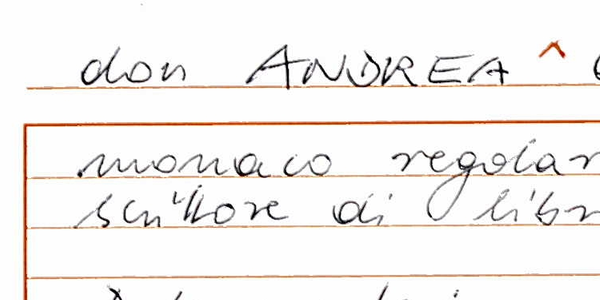 don ANDREA ^
monaco regolar
scrittore di libr